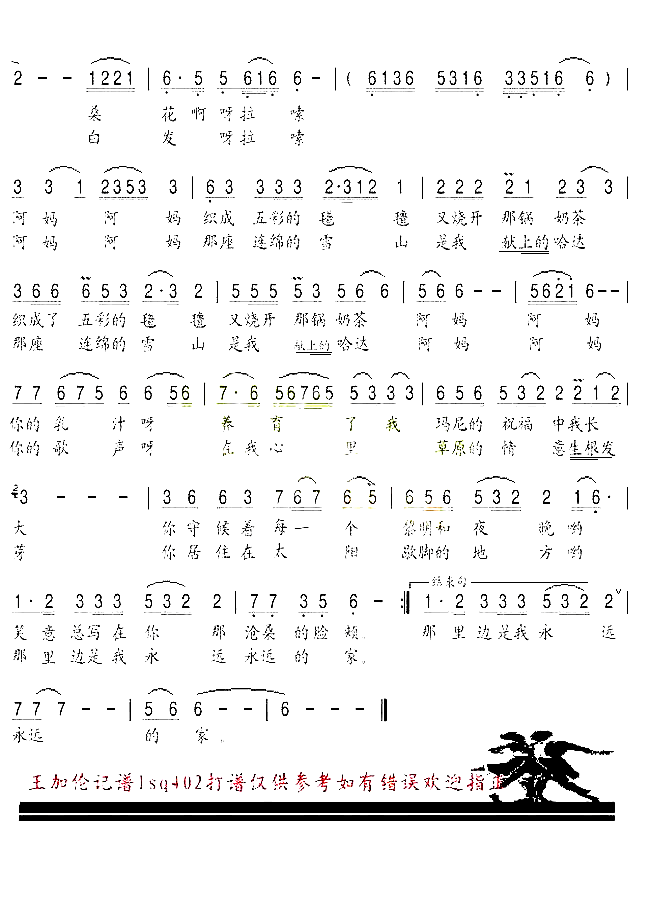 2 - - 1221 | 6· 5 5 616 6 - | ( 6136 5316 33516 6 )
桑 花 啊 呀 拉 嗦
白 发 呀 拉 嗦
3 3 1 2353 3 | 63 333 2·312 1 | 222 21 223 3
阿 妈 阿 妈 织成 五彩的 毯 氆 又烧开 那锅 奶茶
阿 妈 阿 妈 那座 连绵的 雪 山 是我 献上的 哈达
366 653 2·3 2 | 555 53 56 6 | 56 6 - - | 5621 6 - -
织成了 五彩的 毯 氆 又烧开 那锅 奶茶 阿 妈 阿 妈
那座 连绵的 雪 山 是我 献上的 哈达 阿 妈 阿 妈
77 675 6 656 | 7·6 56765 53 33 | 656 5322 2212
你的 乳 汁 呀 养 育 了 我 玛尼的 祝福 中我长
你的 歌 声 呀 在我 心 里 草原的 情 意生根发
3 - - - | 36 63 767 65 | 656 532 2 16·
大 你守 候着 每一 个 黎明和 夜 晚 哟
芽 你居 住在 太 阳 歇脚的 地 方 哟
结束句
1·2 333 532 2 | 77 35 6 - :‖ 1·2 333 532 2
笑意 总写在 你 那 沧桑 的脸 颊。 那里 边是我 永 远
那里 边是我 永 远 永远 的 家。
77 7 - - | 56 6 - - | 6 - - - ‖
永远 的 家。
王加伦记谱lsq402打谱仅供参考如有错误欢迎指正